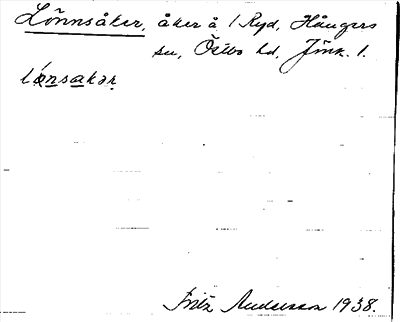 Lönnsåker, åker å 1 Ryd, Hångers
sn, Östbo hd, Jönk. l.
lønsakər
Fritz Andersson 1938.